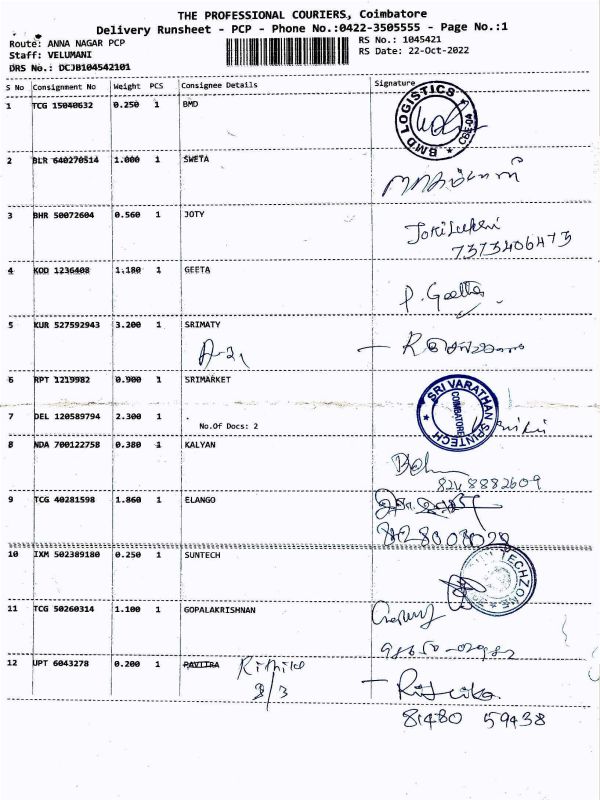 THE PROFESSIONAL COURIERS, Coimbatore
Delivery Runsheet - PCP - Phone No.:0422-3505555 - Page No.:1
Route: ANNA NAGAR PCP
Staff: VELUMANI
DRS No.: DCJB104542101
RS No.: 1045421
RS Date: 22-Oct-2022
S No Consignment No Weight PCS Consignee Details Signature
1 TCG 15040632 0.250 1 BMD
BMD LOGISTICS * CBE-04 *
2 BLR 640270514 1.000 1 SWETA
3 BHR 50072604 0.560 1 JOTY
7373406473
4 KOD 1236408 1.180 1 GEETA
P. Geetha
5 KUR 527592943 3.200 1 SRIMATY
6 RPT 1219982 0.900 1 SRIMARKET
SRI VARATHAN SPINTECH * COIMBATORE
7 DEL 120589794 2.300 1 .
No.Of Docs: 2
8 NDA 700122758 0.380 1 KALYAN
8248882609
9 TCG 40281598 1.860 1 ELANGO
10 IXM 502389180 0.250 1 SUNTECH
TECHZONE
11 TCG 50260314 1.100 1 GOPALAKRISHNAN
12 UPT 6043278 0.200 1 PAVITRA
81480 59438